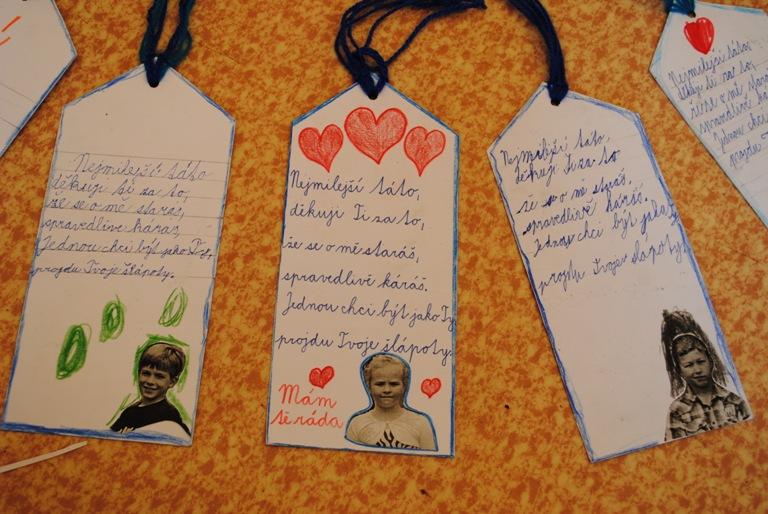 Nejmilejší táto
děkuji ti za to,
že se o mě staráš,
spravedlivě káráš,
Jednou chci být jako Ty,
projdu Tvoje šlápoty.
Nejmilejší táto,
děkuji Ti za to,
že se o mě staráš,
spravedlivě káráš.
Jednou chci být jako Ty,
projdu Tvoje šlápoty.
Mám
tě ráda
Nejmilejší táto,
děkuji Ti za to
že se o mě staráš,
spravedlivě káráš.
Jednou chci být jako Ty,
projdu Tvoje šlápoty.
Nejmilejší táto,
děkuji ti za to,
že se o mě
spravedlivě
Jednou chci
projdu